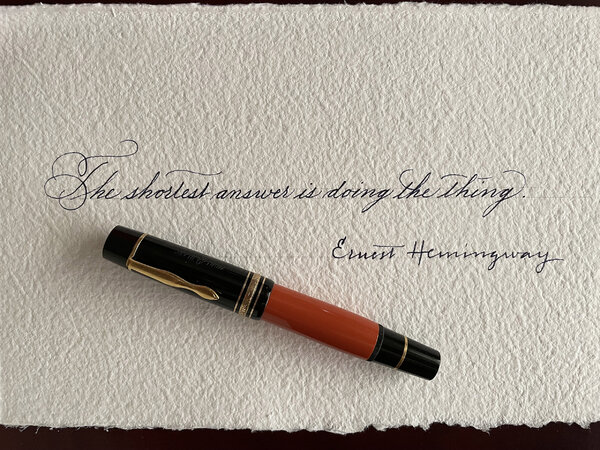 The shortest answer is doing the thing.
Ernest Hemingway